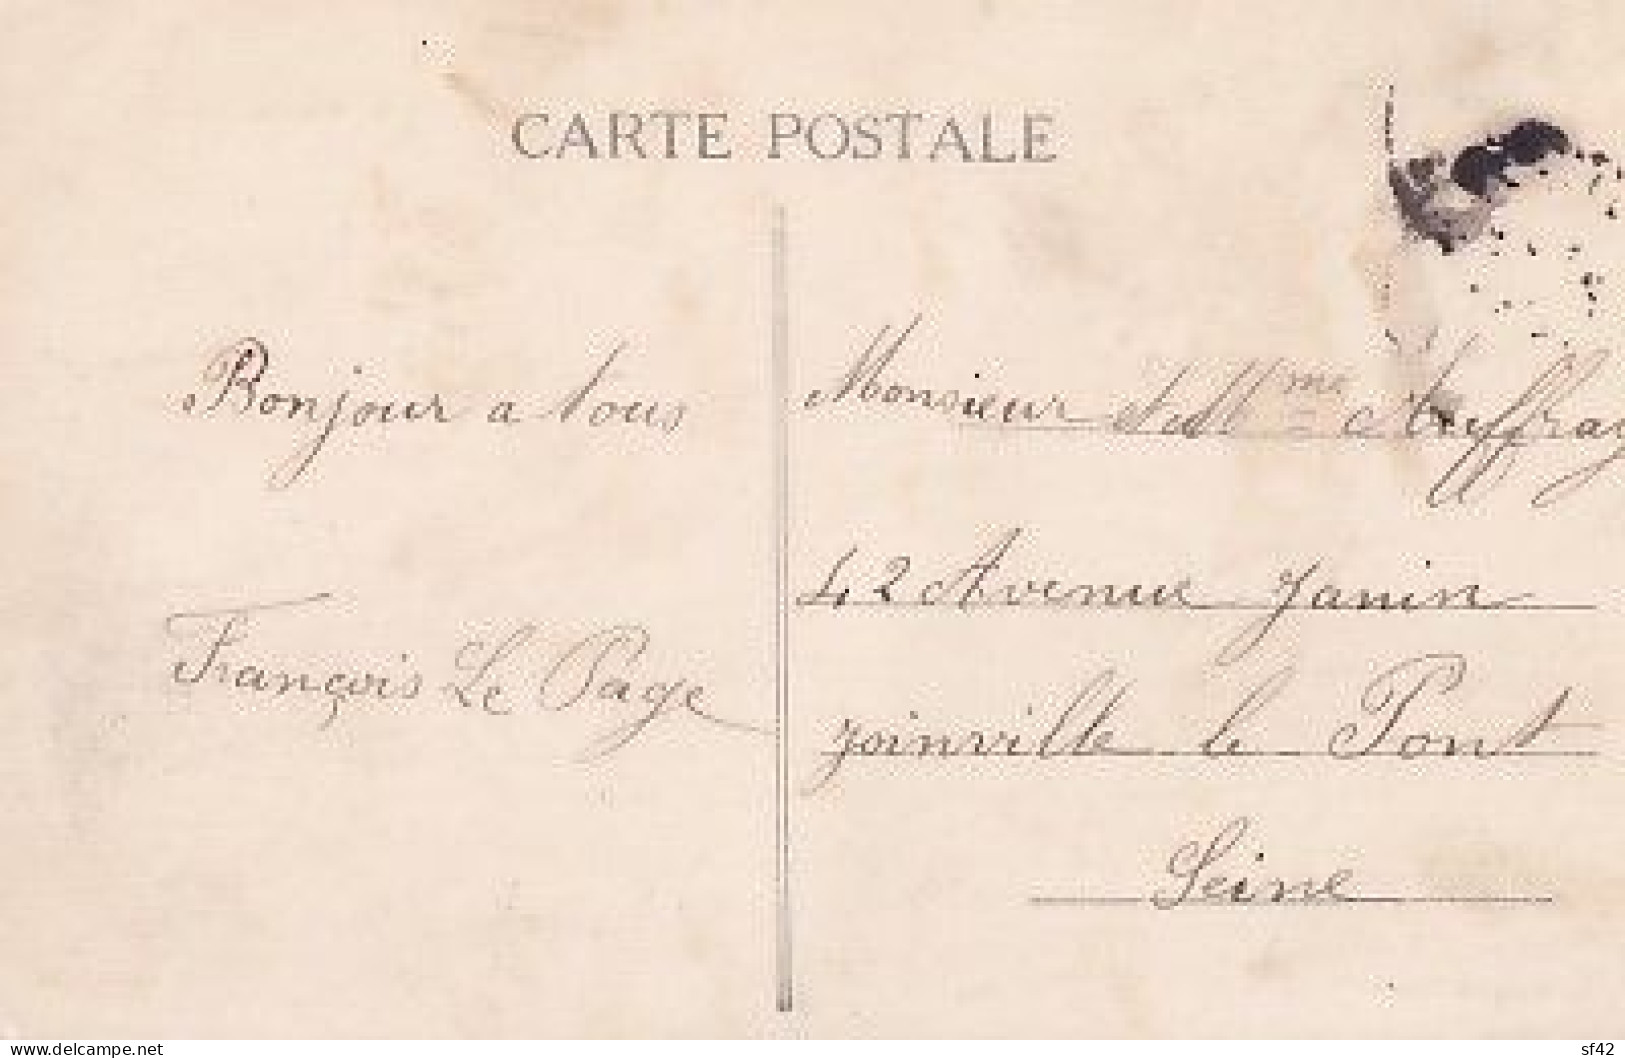 CARTE POSTALE
Bonjour a tous
François Le Page
Monsieur
42 Avenue Janin
Joinville le Pont
Seine
www.delcampe.net
sf42